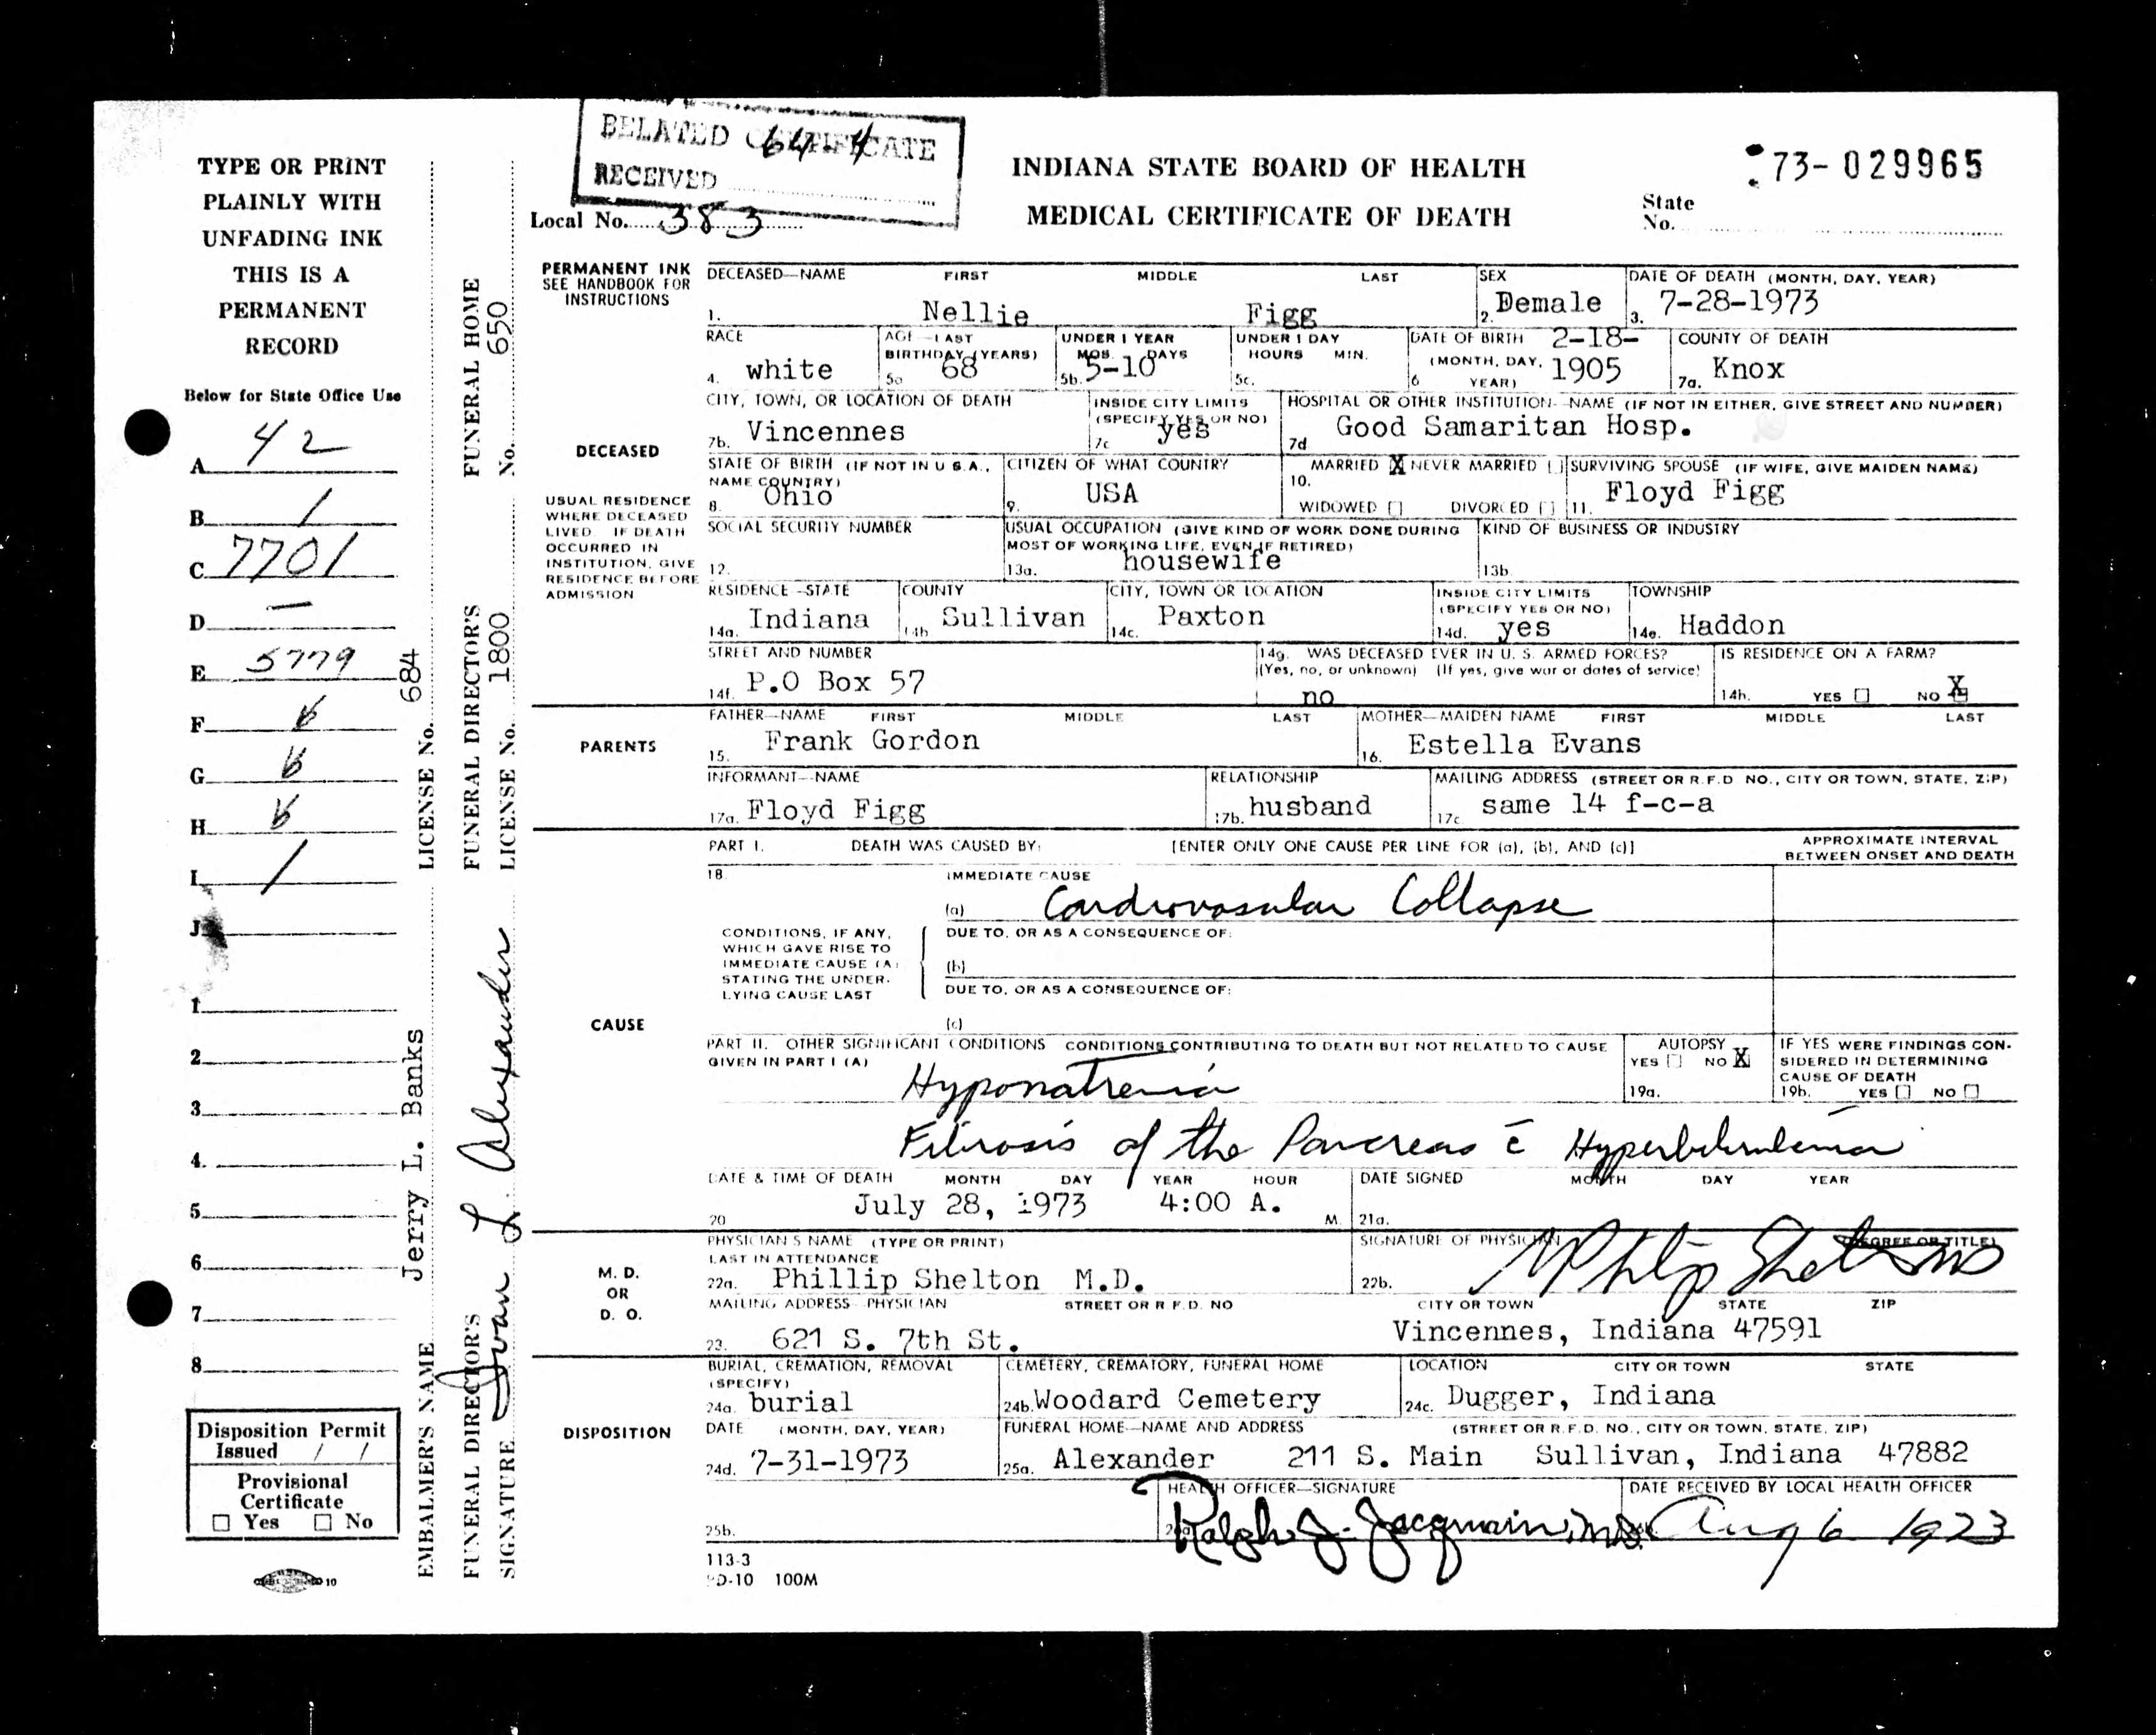 BELATED CERTIFICATE
64-4
RECEIVED
Local No. 383
INDIANA STATE BOARD OF HEALTH
MEDICAL CERTIFICATE OF DEATH
73- 029965
State
No.
TYPE OR PRINT
PLAINLY WITH
UNFADING INK
THIS IS A
PERMANENT
RECORD
Below for State Office Use
A 42
B 1
C 7701
D —
E 5779
F
G
H
I 1
J
1
2
3
4.
5
6
7
8
Disposition Permit
Issued / /
Provisional
Certificate
☐ Yes ☐ No
EMBALMER'S NAME Jerry L. Banks LICENSE No. 684
FUNERAL DIRECTOR'S
SIGNATURE Ivan L. Alexander
FUNERAL DIRECTOR'S
LICENSE No. 1800
FUNERAL HOME
No. 650
PERMANENT INK
SEE HANDBOOK FOR
INSTRUCTIONS
DECEASED—NAME FIRST MIDDLE LAST
1. Nellie Figg
SEX
2. Demale
DATE OF DEATH (MONTH, DAY, YEAR)
3. 7-28-1973
RACE
4. white
AGE—LAST
BIRTHDAY (YEARS)
5a 68
UNDER 1 YEAR
MOS. DAYS
5b. 5-10
UNDER 1 DAY
HOURS MIN.
5c.
DATE OF BIRTH 2-18-
(MONTH, DAY, 1905
6 YEAR)
COUNTY OF DEATH
7a. Knox
DECEASED
CITY, TOWN, OR LOCATION OF DEATH
7b. Vincennes
INSIDE CITY LIMITS
(SPECIFY YES OR NO)
7c yes
HOSPITAL OR OTHER INSTITUTION—NAME (IF NOT IN EITHER, GIVE STREET AND NUMBER)
7d Good Samaritan Hosp.
USUAL RESIDENCE
WHERE DECEASED
LIVED. IF DEATH
OCCURRED IN
INSTITUTION, GIVE
RESIDENCE BEFORE
ADMISSION
STATE OF BIRTH (IF NOT IN U.S.A.,
NAME COUNTRY)
8. Ohio
CITIZEN OF WHAT COUNTRY
9. USA
MARRIED ☒ NEVER MARRIED ☐
10.
WIDOWED ☐ DIVORCED ☐
SURVIVING SPOUSE (IF WIFE, GIVE MAIDEN NAME)
11. Floyd Figg
SOCIAL SECURITY NUMBER
12.
USUAL OCCUPATION (GIVE KIND OF WORK DONE DURING
MOST OF WORKING LIFE, EVEN IF RETIRED)
13a. housewife
KIND OF BUSINESS OR INDUSTRY
13b
RESIDENCE—STATE
14a. Indiana
COUNTY
14b Sullivan
CITY, TOWN OR LOCATION
14c. Paxton
INSIDE CITY LIMITS
(SPECIFY YES OR NO)
14d. yes
TOWNSHIP
14e. Haddon
STREET AND NUMBER
14f. P.O Box 57
14g. WAS DECEASED EVER IN U. S. ARMED FORCES?
(Yes, no, or unknown) (If yes, give war or dates of service)
no
IS RESIDENCE ON A FARM?
14h. YES ☐ NO ☒
PARENTS
FATHER—NAME FIRST MIDDLE LAST
15. Frank Gordon
MOTHER—MAIDEN NAME FIRST MIDDLE LAST
16. Estella Evans
INFORMANT—NAME
17a. Floyd Figg
RELATIONSHIP
17b. husband
MAILING ADDRESS (STREET OR R.F.D NO., CITY OR TOWN, STATE, ZIP)
17c same 14 f-c-a
PART I. DEATH WAS CAUSED BY: [ENTER ONLY ONE CAUSE PER LINE FOR (a), (b), AND (c)]
APPROXIMATE INTERVAL
BETWEEN ONSET AND DEATH
18. IMMEDIATE CAUSE
(a) Cardiovascular Collapse
CONDITIONS, IF ANY,
WHICH GAVE RISE TO
IMMEDIATE CAUSE (A)
STATING THE UNDER-
LYING CAUSE LAST
DUE TO, OR AS A CONSEQUENCE OF:
(b)
DUE TO, OR AS A CONSEQUENCE OF:
(c)
CAUSE
PART II. OTHER SIGNIFICANT CONDITIONS CONDITIONS CONTRIBUTING TO DEATH BUT NOT RELATED TO CAUSE
GIVEN IN PART I (A)
Hyponatremia
Fibrosis of the Pancreas c̄ Hyperbilirubinemia
AUTOPSY
YES ☐ NO ☒
19a.
IF YES WERE FINDINGS CON-
SIDERED IN DETERMINING
CAUSE OF DEATH
19b. YES ☐ NO ☐
DATE & TIME OF DEATH MONTH DAY YEAR HOUR
20 July 28, 1973 4:00 A. M.
DATE SIGNED MONTH DAY YEAR
21a.
M. D.
OR
D. O.
PHYSICIAN'S NAME (TYPE OR PRINT)
LAST IN ATTENDANCE
22a. Phillip Shelton M.D.
SIGNATURE OF PHYSICIAN (DEGREE OR TITLE)
22b. Philip Shelton MD
MAILING ADDRESS—PHYSICIAN STREET OR R.F.D. NO CITY OR TOWN STATE ZIP
23. 621 S. 7th St. Vincennes, Indiana 47591
DISPOSITION
BURIAL, CREMATION, REMOVAL
(SPECIFY)
24a. burial
CEMETERY, CREMATORY, FUNERAL HOME
24b. Woodard Cemetery
LOCATION CITY OR TOWN STATE
24c. Dugger, Indiana
DATE (MONTH, DAY, YEAR)
24d. 7-31-1973
FUNERAL HOME—NAME AND ADDRESS (STREET OR R.F.D. NO., CITY OR TOWN, STATE, ZIP)
25a. Alexander 211 S. Main Sullivan, Indiana 47882
25b.
HEALTH OFFICER—SIGNATURE
Ralph J. Jacqmain, M.D.
DATE RECEIVED BY LOCAL HEALTH OFFICER
Aug 6 1973
113-3
10 100M